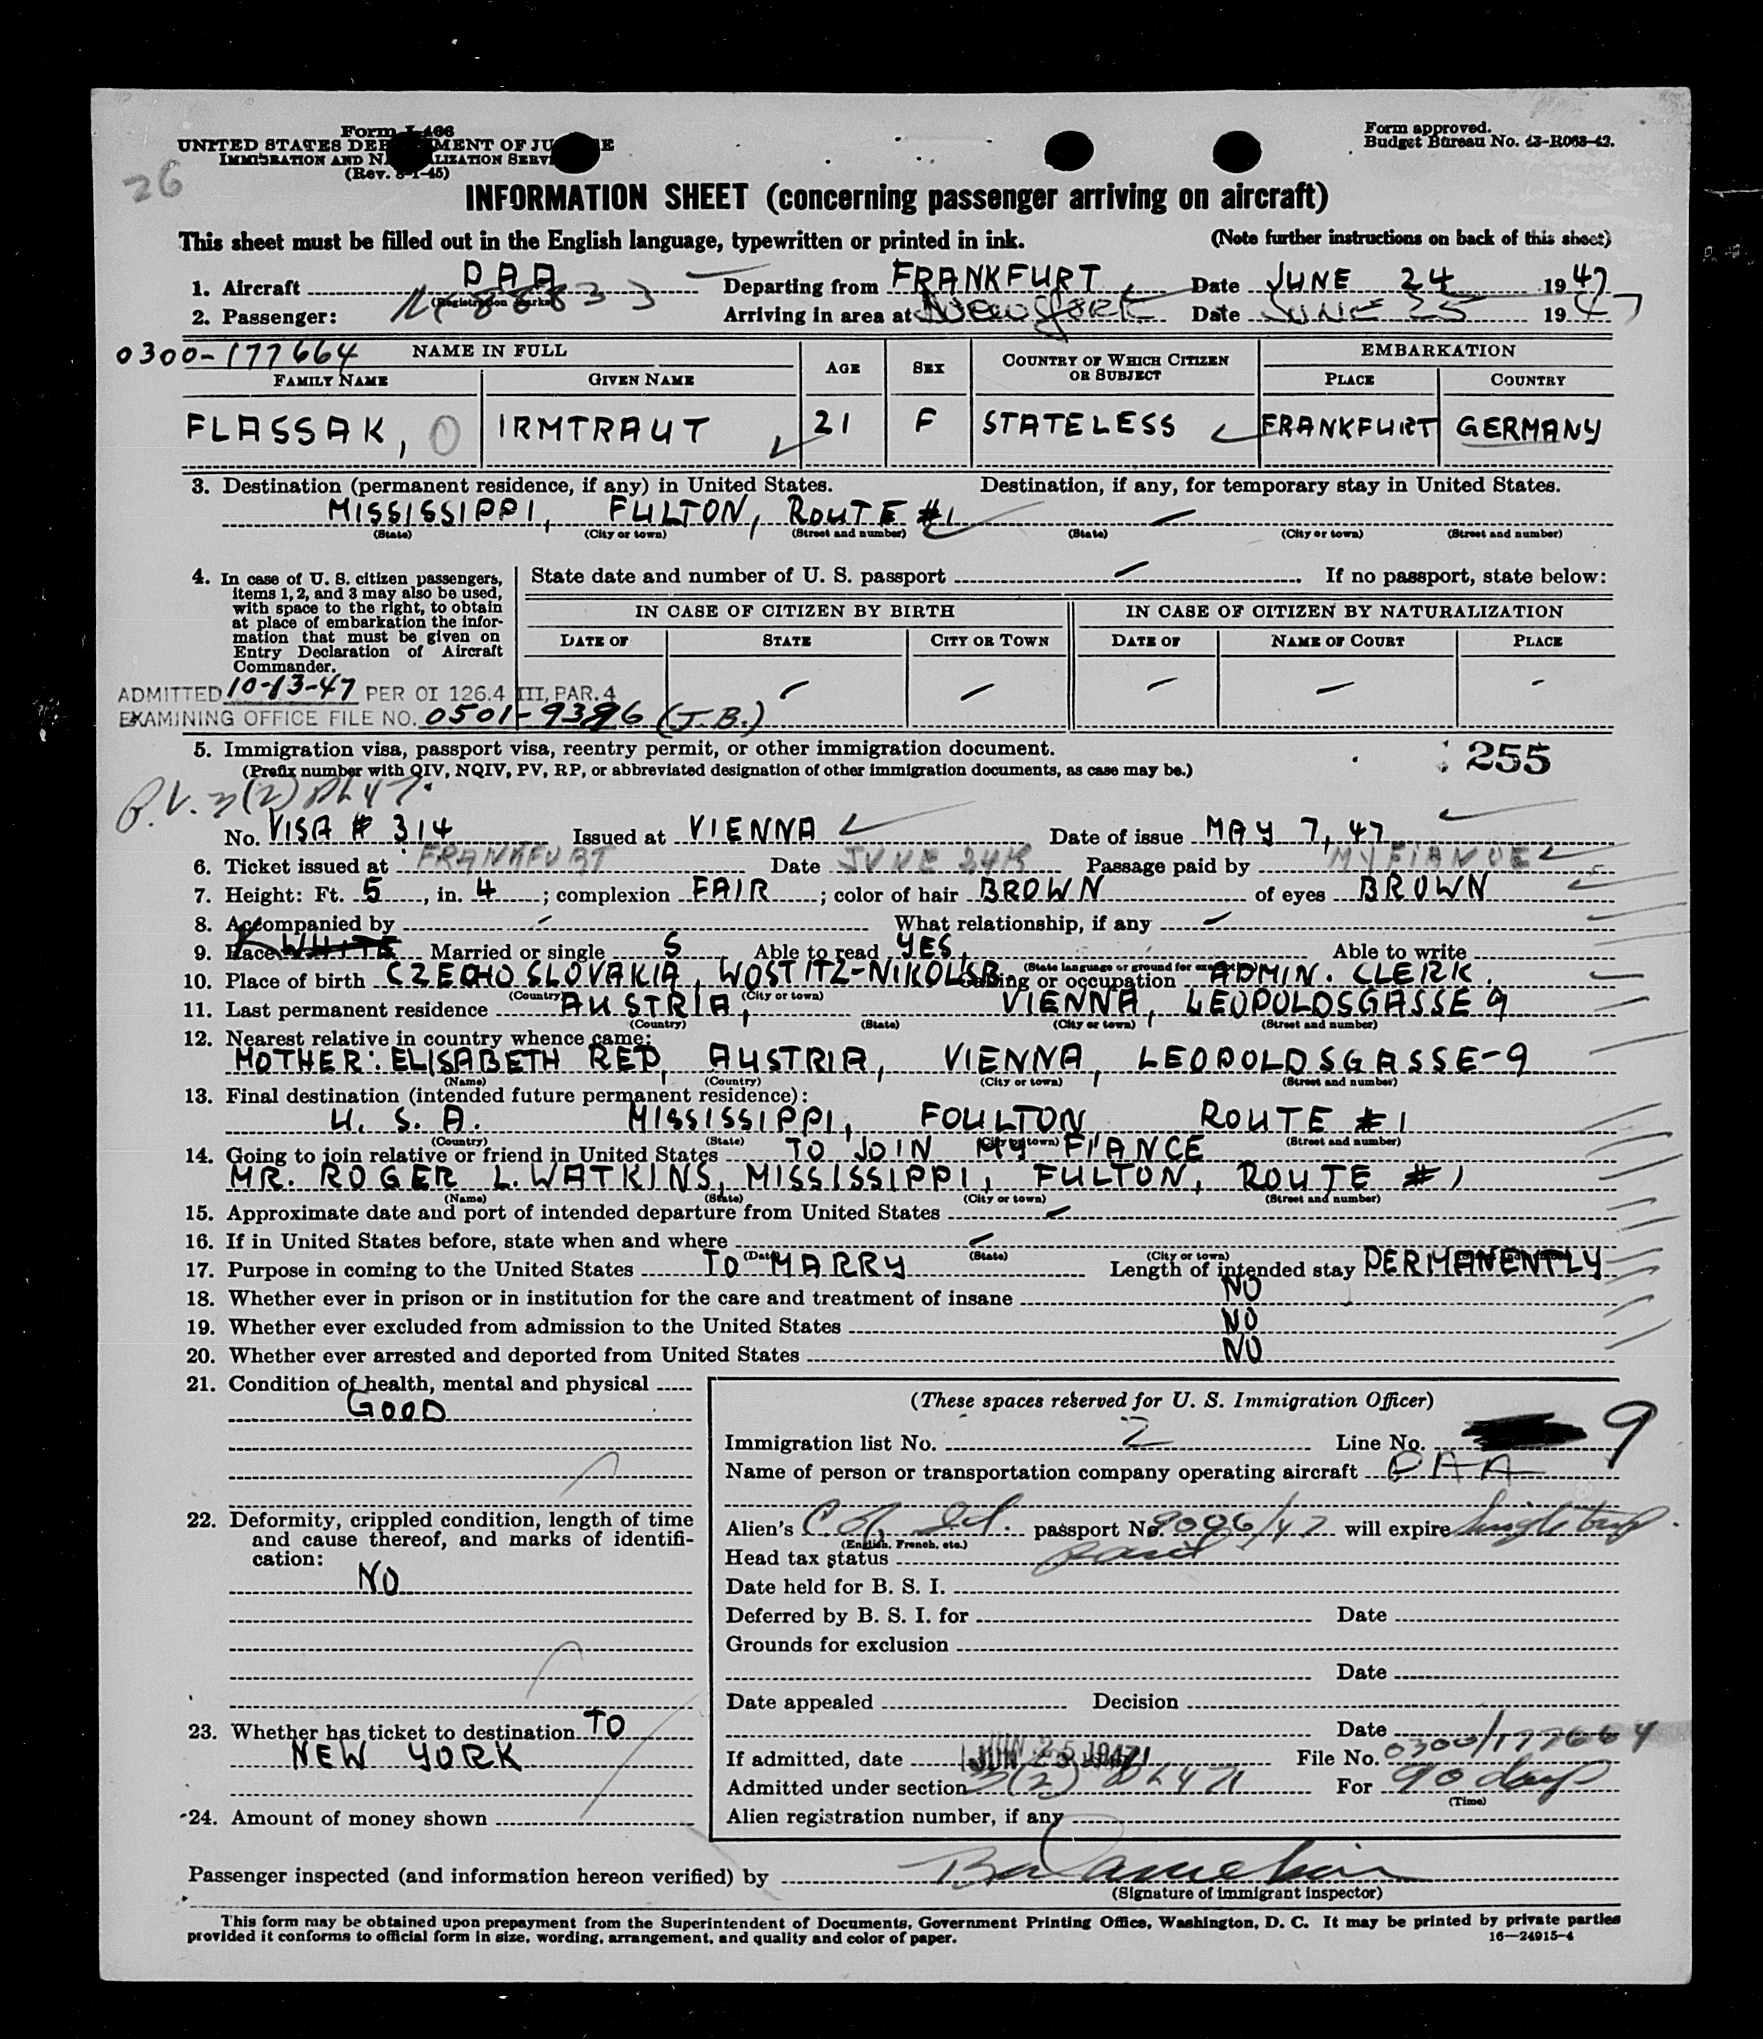 Form I-466
UNITED STATES DEPARTMENT OF JUSTICE
IMMIGRATION AND NATURALIZATION SERVICE
(Rev. 8-1-45)
Form approved.
Budget Bureau No. 43-R063-42.
26
INFORMATION SHEET (concerning passenger arriving on aircraft)
This sheet must be filled out in the English language, typewritten or printed in ink. (Note further instructions on back of this sheet)
1. Aircraft PAA Departing from FRANKFURT, Date JUNE 24 1947
(Registration marks)
2. Passenger: N 88833 Arriving in area at New York Date JUNE 25 1947
0300-177664 NAME IN FULL AGE SEX COUNTRY OF WHICH CITIZEN OR SUBJECT EMBARKATION
FAMILY NAME GIVEN NAME PLACE COUNTRY
FLASSAK, O IRMTRAUT 21 F STATELESS FRANKFURT GERMANY
3. Destination (permanent residence, if any) in United States. Destination, if any, for temporary stay in United States.
MISSISSIPPI, FULTON, ROUTE #1 –
(State) (City or town) (Street and number) (State) (City or town) (Street and number)
4. In case of U. S. citizen passengers, items 1, 2, and 3 may also be used, with space to the right, to obtain at place of embarkation the information that must be given on Entry Declaration of Aircraft Commander.
State date and number of U. S. passport – . If no passport, state below:
IN CASE OF CITIZEN BY BIRTH IN CASE OF CITIZEN BY NATURALIZATION
DATE OF STATE CITY OR TOWN DATE OF NAME OF COURT PLACE
– – – – –
ADMITTED 10-13-47 PER OI 126.4 III, PAR. 4
EXAMINING OFFICE FILE NO. 0501-9396 (J.B.)
5. Immigration visa, passport visa, reentry permit, or other immigration document. 255
(Prefix number with QIV, NQIV, PV, RP, or abbreviated designation of other immigration documents, as case may be.)
P.V. 3(2) PL 471
No. VISA # 314 Issued at VIENNA Date of issue MAY 7, 47
6. Ticket issued at FRANKFURT Date JUNE 24th Passage paid by MY FIANCE
7. Height: Ft. 5, in. 4; complexion FAIR; color of hair BROWN of eyes BROWN
8. Accompanied by – What relationship, if any –
9. Race WHITE Married or single S Able to read YES, Able to write
(State language or ground for exemption)
10. Place of birth CZECHOSLOVAKIA, WOSTITZ-NIKOLSB. Calling or occupation ADMIN. CLERK.
(Country) (City or town)
11. Last permanent residence AUSTRIA, VIENNA, LEOPOLDSGASSE 9
(Country) (State) (City or town) (Street and number)
12. Nearest relative in country whence came:
MOTHER: ELISABETH REP, AUSTRIA, VIENNA, LEOPOLDSGASSE-9
(Name) (Country) (City or town) (Street and number)
13. Final destination (intended future permanent residence):
U. S. A. MISSISSIPPI, FOULTON ROUTE #1
(Country) (State) (City or town) (Street and number)
14. Going to join relative or friend in United States TO JOIN MY FIANCE
MR. ROGER L. WATKINS, MISSISSIPPI, FULTON, ROUTE #1
(Name) (State) (City or town) (Street and number)
15. Approximate date and port of intended departure from United States –
16. If in United States before, state when and where –
(Date) (State) (City or town)
17. Purpose in coming to the United States TO MARRY Length of intended stay PERMANENTLY
18. Whether ever in prison or in institution for the care and treatment of insane NO
19. Whether ever excluded from admission to the United States NO
20. Whether ever arrested and deported from United States NO
21. Condition of health, mental and physical
GOOD
22. Deformity, crippled condition, length of time and cause thereof, and marks of identification:
NO
23. Whether has ticket to destination TO
NEW YORK
24. Amount of money shown
(These spaces reserved for U. S. Immigration Officer)
Immigration list No. 2 Line No. 9
Name of person or transportation company operating aircraft PAA
Alien's passport No. 9006/47 will expire Single trip.
(English, French, etc.)
Head tax status Paid
Date held for B. S. I.
Deferred by B. S. I. for Date
Grounds for exclusion
Date
Date appealed Decision
Date
If admitted, date JUN 25 1947 File No. 0300/177664
Admitted under section 3(2) PL 471 For 90 days
(Time)
Alien registration number, if any
Passenger inspected (and information hereon verified) by
(Signature of immigrant inspector)
This form may be obtained upon prepayment from the Superintendent of Documents, Government Printing Office, Washington, D. C. It may be printed by private parties
provided it conforms to official form in size, wording, arrangement, and quality and color of paper. 16—24915-4